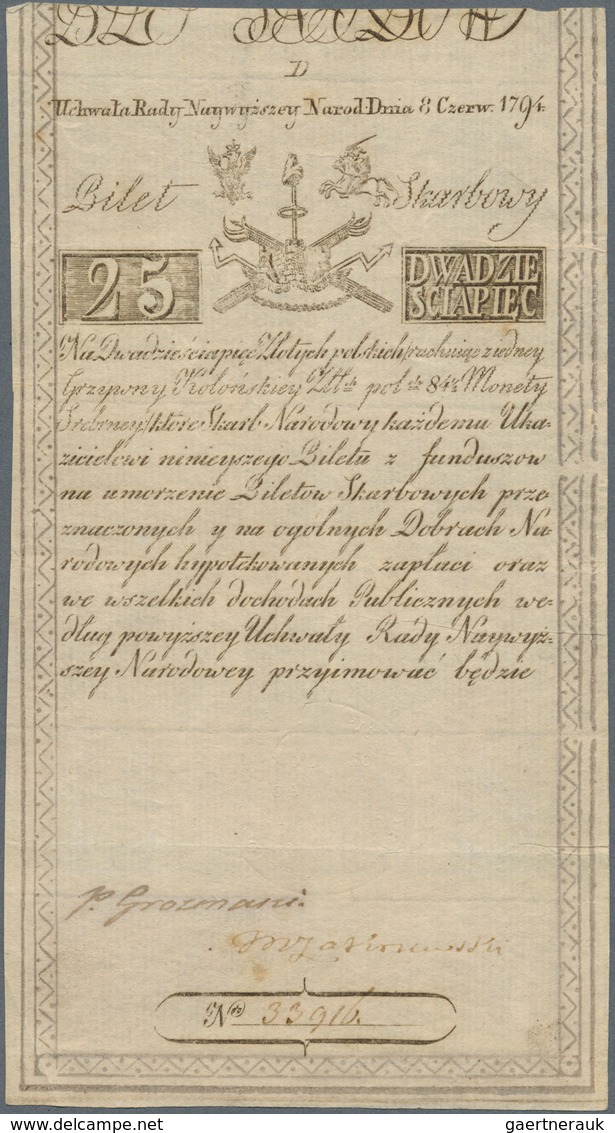 D
Uchwała Rady Naywyższey Narod: Dnia 8 Czerw: 1794.
Bilet Skarbowy
25
DWADZIE
ŚCIAPIĘC
Na Dwadzieściapięć Złotych polskich rachuiąc z iedney
Grzywny Kolońskiey Złł: pol: 84½ Monety
Srebrney które Skarb Narodowy każdemu Uka=
zicielowi ninieyszego Biletu z funduszow
na umorzenie Biletow Skarbowych prze=
znaczonych y na ogolnych Dobrach Na=
rodowych hypotekowanych zapłaci oraz
we wszelkich dochodach Publicznych we=
dług powyższey Uchwały Rady Naywyż=
szey Narodowey przyimować będzie
P. Grozmani.
No 33916.
gaertnerauk @ delcampe.net